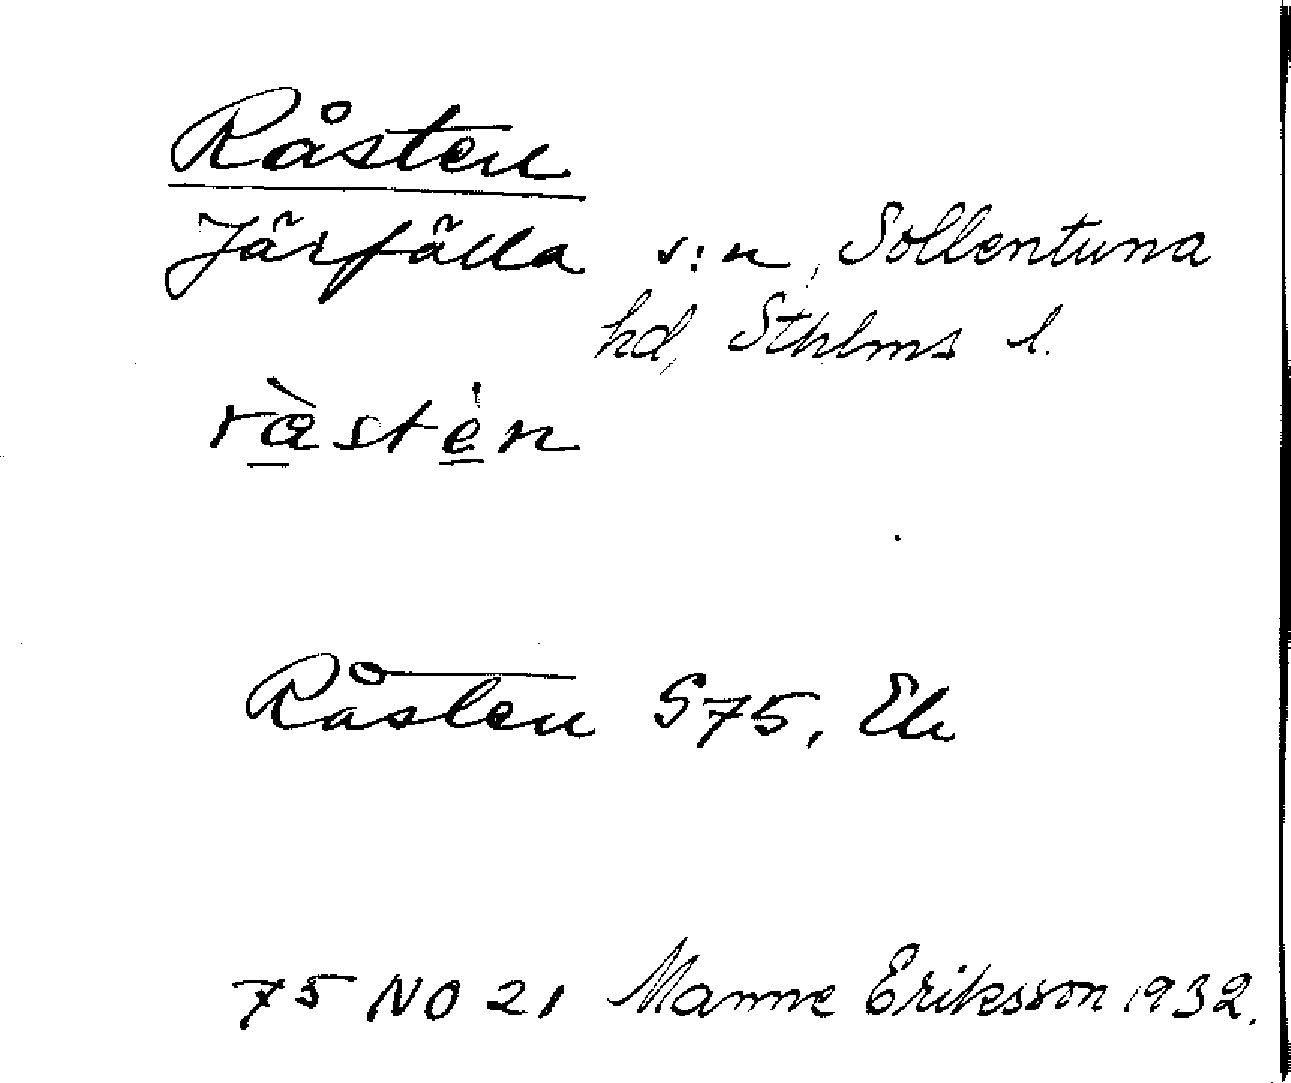 Råsten
Järfälla s:n, Sollentuna
hd, Sthlms l.
ràstén
Råsten S75, Ek
75 NO 21 Manne Eriksson 1932.